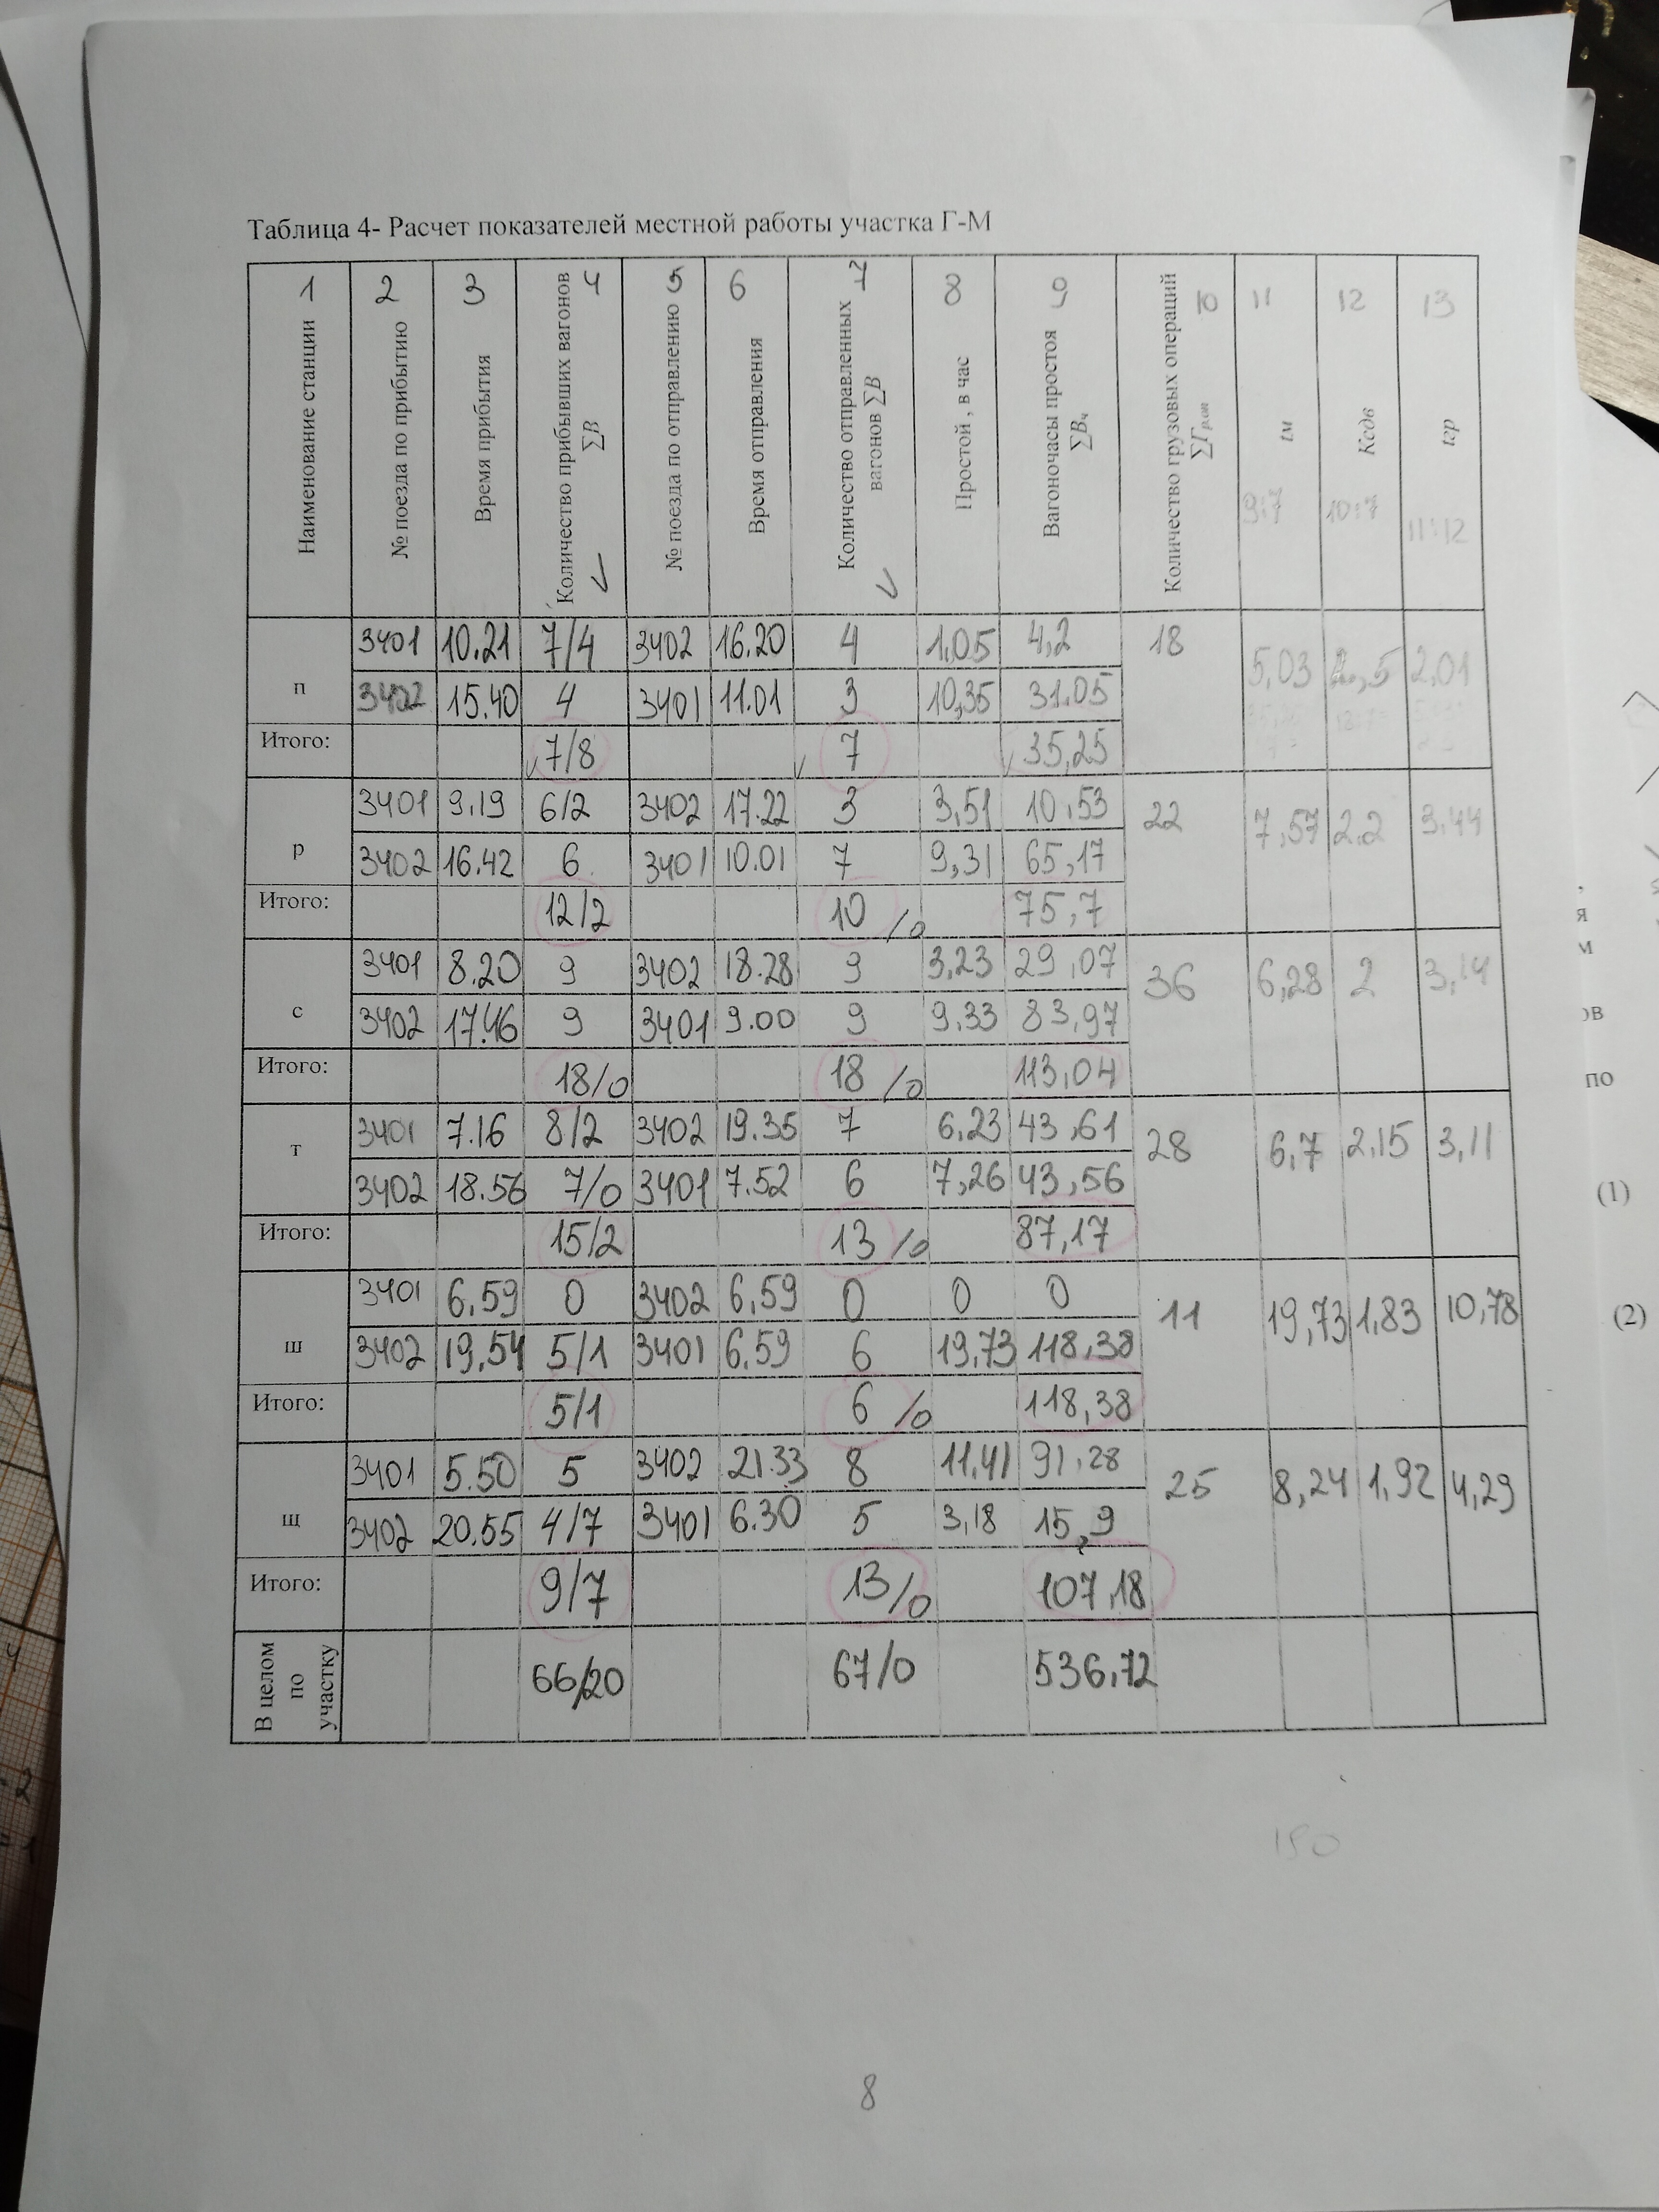 Таблица 4- Расчет показателей местной работы участка Г-М
1 2 3 4 5 6 7 8 9 10 11 12 13
Наименование станции
№ поезда по прибытию
Время прибытия
Количество прибывших вагонов ∑В
№ поезда по отправлению
Время отправления
Количество отправленных вагонов ∑В
Простой , в час
Вагоночасы простоя ∑Вч
Количество грузовых операций ∑Гр.оп
tм 9:7
Ксдв 10:7
tгр 11:12
3401 10.21 7/4 3402 16.20 4 1,05 4,2 18
п 3402 15.40 4 3401 11.01 3 10,35 31.05 5,03 2,5 2,01
Итого: 7/8 7 35,25
3401 9.19 6/2 3402 17.22 3 3,51 10,53 22 7,57 2.2 3,44
р 3402 16.42 6 3401 10.01 7 9,31 65,17
Итого: 12/2 10/0 75,7
3401 8.20 9 3402 18.28 9 3,23 29,07 36 6,28 2 3,14
с 3402 17.46 9 3401 9.00 9 9.33 83,97
Итого: 18/0 18/0 113,04
3401 7.16 8/2 3402 19.35 7 6,23 43,61 28 6,7 2,15 3,11
т 3402 18.56 7/0 3401 7.52 6 7,26 43,56
Итого: 15/2 13/0 87,17
3401 6.59 0 3402 6.59 0 0 0 11 19,73 1,83 10,78
ш 3402 19,54 5/1 3401 6.59 6 19,73 118,38
Итого: 5/1 6/0 118,38
3401 5.50 5 3402 21.33 8 11,41 91,28 25 8,24 1,92 4,29
щ 3402 20.55 4/7 3401 6.30 5 3,18 15,9
Итого: 9/7 13/0 107,18
В целом по участку 66/20 67/0 536,72
150
8
я
м
ов
по
(1)
(2)